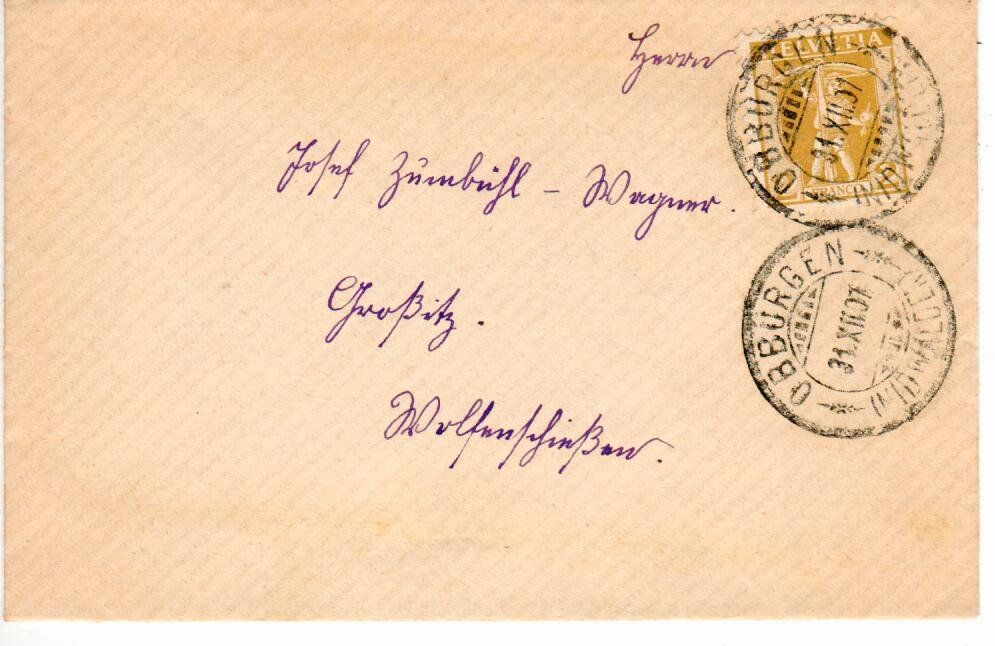 Herrn
HELVETIA
FRANCO
OBBÜRGEN
31.XII.07
(NIDWALDEN)
Josef Zumbühl - Wagner.
OBBÜRGEN
31.XII.07
(NIDWALDEN)
Großitz.
Wolfenschießen.